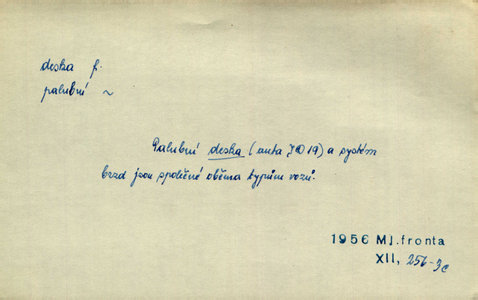 deska f.
palubní ~
Palubní deska (auta
) a systém
brzd jsou společné oběma typům vozů.
1956 Ml.fronta
XII,